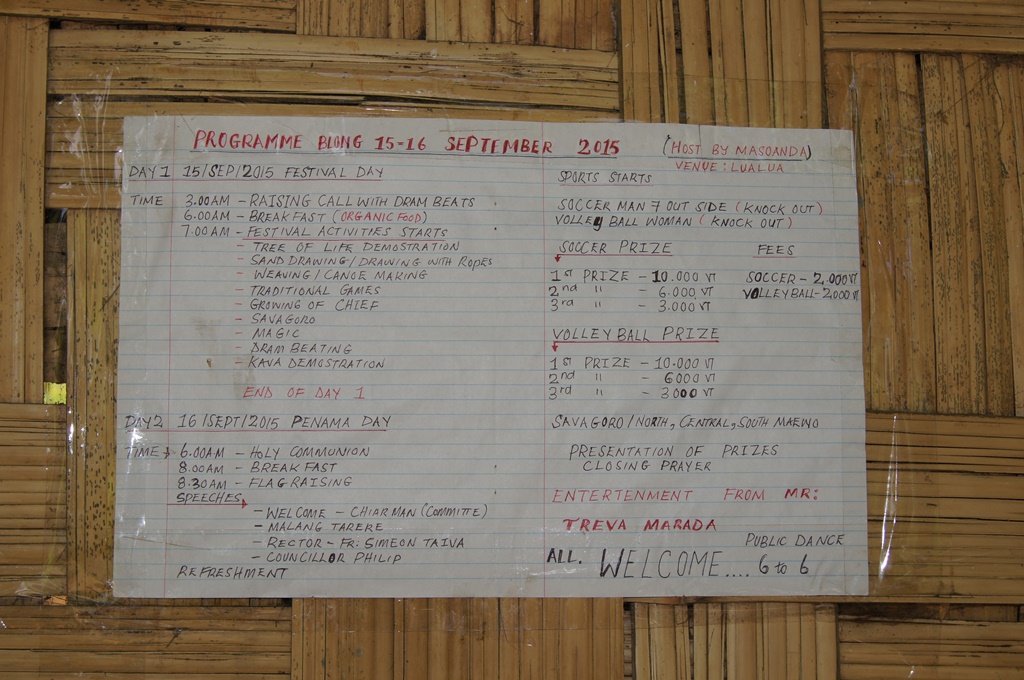 PROGRAMME BLONG 15-16 SEPTEMBER 2015
(HOST BY MASOANDA)
VENUE: LUALUA
DAY 1 15/SEP/2015 FESTIVAL DAY
TIME 3.00AM - RAISING CALL WITH DRAM BEATS
6.00AM - BREAKFAST (ORGANIC FOOD)
7.00AM - FESTIVAL ACTIVITIES STARTS
- TREE OF LIFE DEMOSTRATION
- SAND DRAWING/DRAWING WITH ROPES
- WEAVING/CANOE MAKING
- TRADITIONAL GAMES
- GROWING OF CHIEF
- SAVAGORO
- MAGIC
- DRAM BEATING
- KAVA DEMOSTRATION
END OF DAY 1
DAY2 16/SEPT/2015 PENAMA DAY
TIME 6.00AM - HOLY COMMUNION
8.00AM - BREAKFAST
8.30AM - FLAG RAISING
SPEECHES
- WELCOME - CHIARMAN (COMMITTE)
- MALANG TARERE
- RECTOR - FR: SIMEON TAIVA
- COUNCILLOR PHILIP
REFRESHMENT
SPORTS STARTS
SOCCER MAN 7 OUT SIDE (KNOCK OUT)
VOLLEyBALL WOMAN (KNOCK OUT)
SOCCER PRIZE FEES
1st PRIZE - 10.000 VT SOCCER - 2.000VT
2nd " - 6.000 VT VOLLEYBALL - 2.000 VT
3rd " - 3.000 VT
VOLLEYBALL PRIZE
1ST PRIZE - 10.000 VT
2nd " - 6000 VT
3rd " - 3000 VT
SAVAGORO/NORTH, CENTRAL, SOUTH MAEWO
PRESENTATION OF PRIZES
CLOSING PRAYER
ENTERTENMENT FROM MR:
TREVA MARADA
PUBLIC DANCE
ALL. WELCOME.... 6 to 6